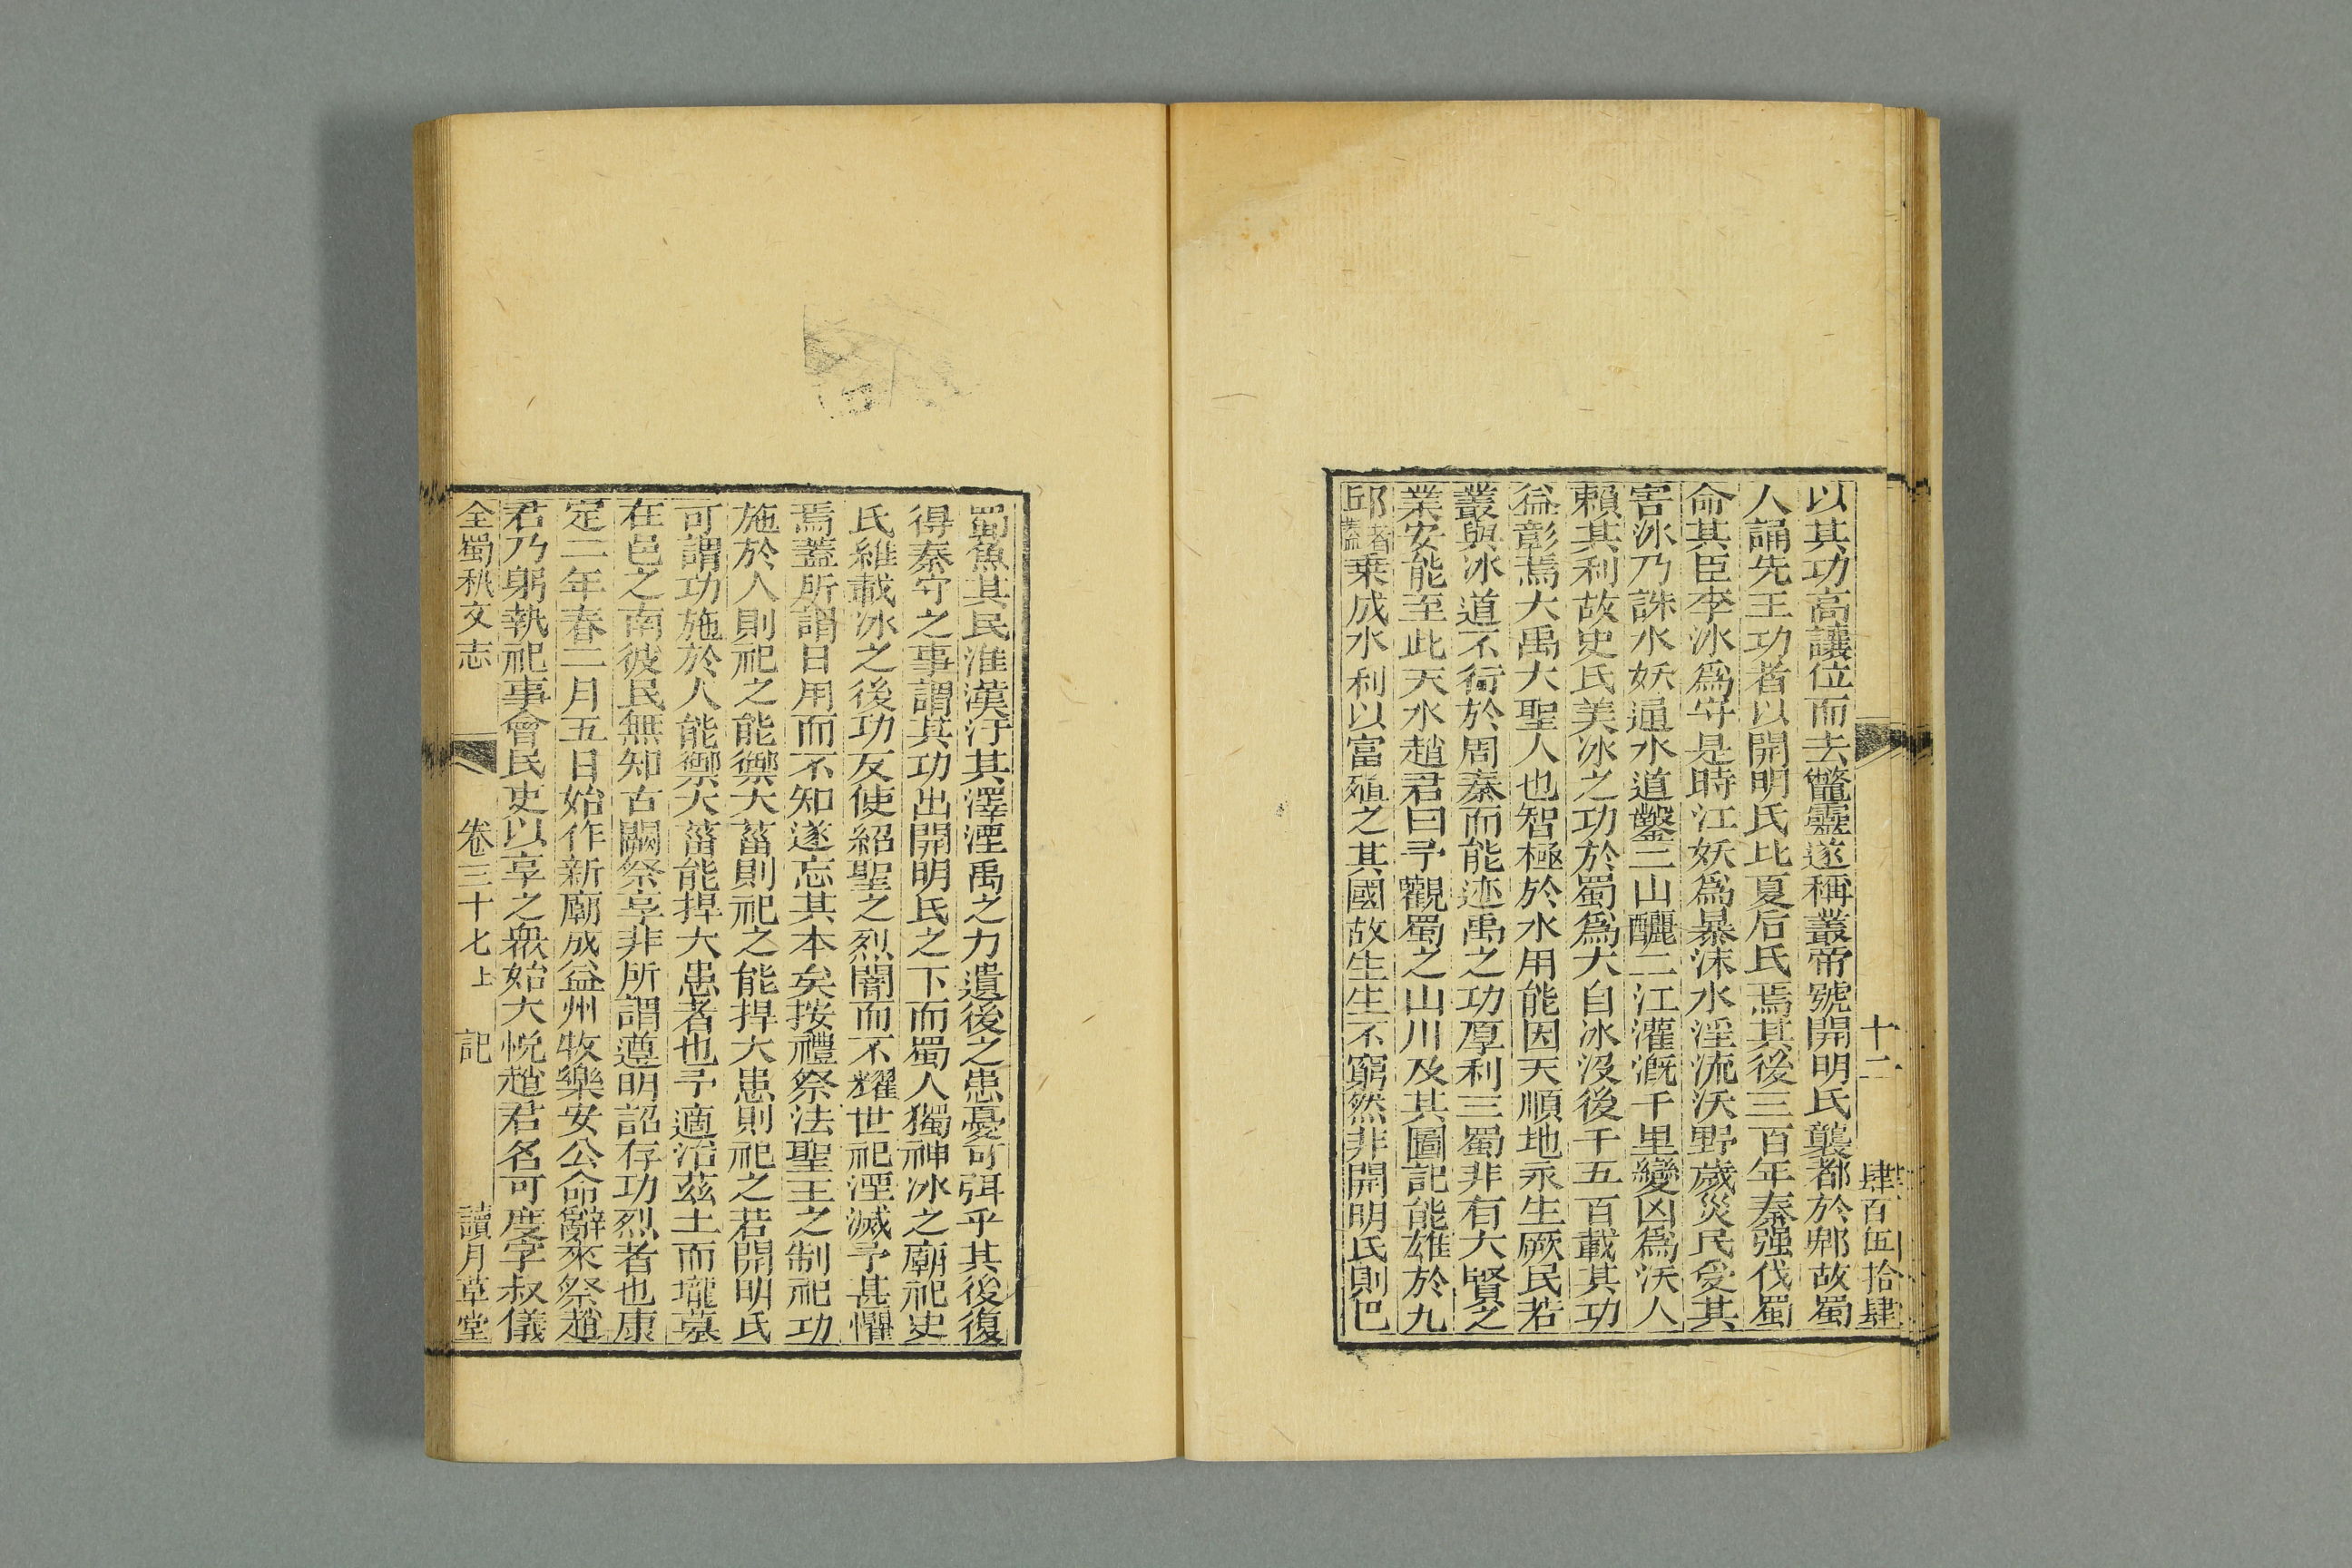 十二　肆百伍拾肆
以其功高讓位而去鼈靈遂稱叢帝號開明氏襲都於郫故蜀
人誦先王功者以開明氏比夏后氏焉其後三百年秦强伐蜀
命其臣李冰爲守是時江妖爲暴沫水淫流沃野歲災民受其
害冰乃誅水妖通水道鑿二山釃二江灌漑千里變凶爲沃人
賴其利故史氏美冰之功於蜀爲大自冰沒後千五百載其功
益彰焉大禹大聖人也智極於水用能因天順地永生厥民若
叢與冰道不行於周秦而能迹禹之功厚利三蜀非有大賢之
業安能至此天水趙君曰予觀蜀之山川及其圖記能雄於九
邱者蓋乗成水利以富殖之其國故生生不窮然非開明氏則巴
蜀魚其民淮漢汙其澤湮禹之力遺後之患憂可弭乎其後復
得秦守之事謂其功出開明氏之下而蜀人獨神冰之廟祀史
氏維載冰之後功反使紹聖之烈闇而不耀世祀湮滅予甚懼
焉蓋所謂日用而不知遂忘其本矣按禮祭法聖王之制祀功
施於人則祀之能禦大菑則祀之能捍大患則祀之若開明氏
可謂功施於人能禦大菑能捍大患者也予適治茲土而壠墓
在邑之南彼民無知古闕祭享非所謂遵明詔存功烈者也康
定二年春二月五日始作新廟成益州牧樂安公命辭來祭趙
君乃躬執祀事會民吏以享之衆始大悅趙君名可度字叔儀
全蜀秇文志　卷三十七上　記　讀月草堂